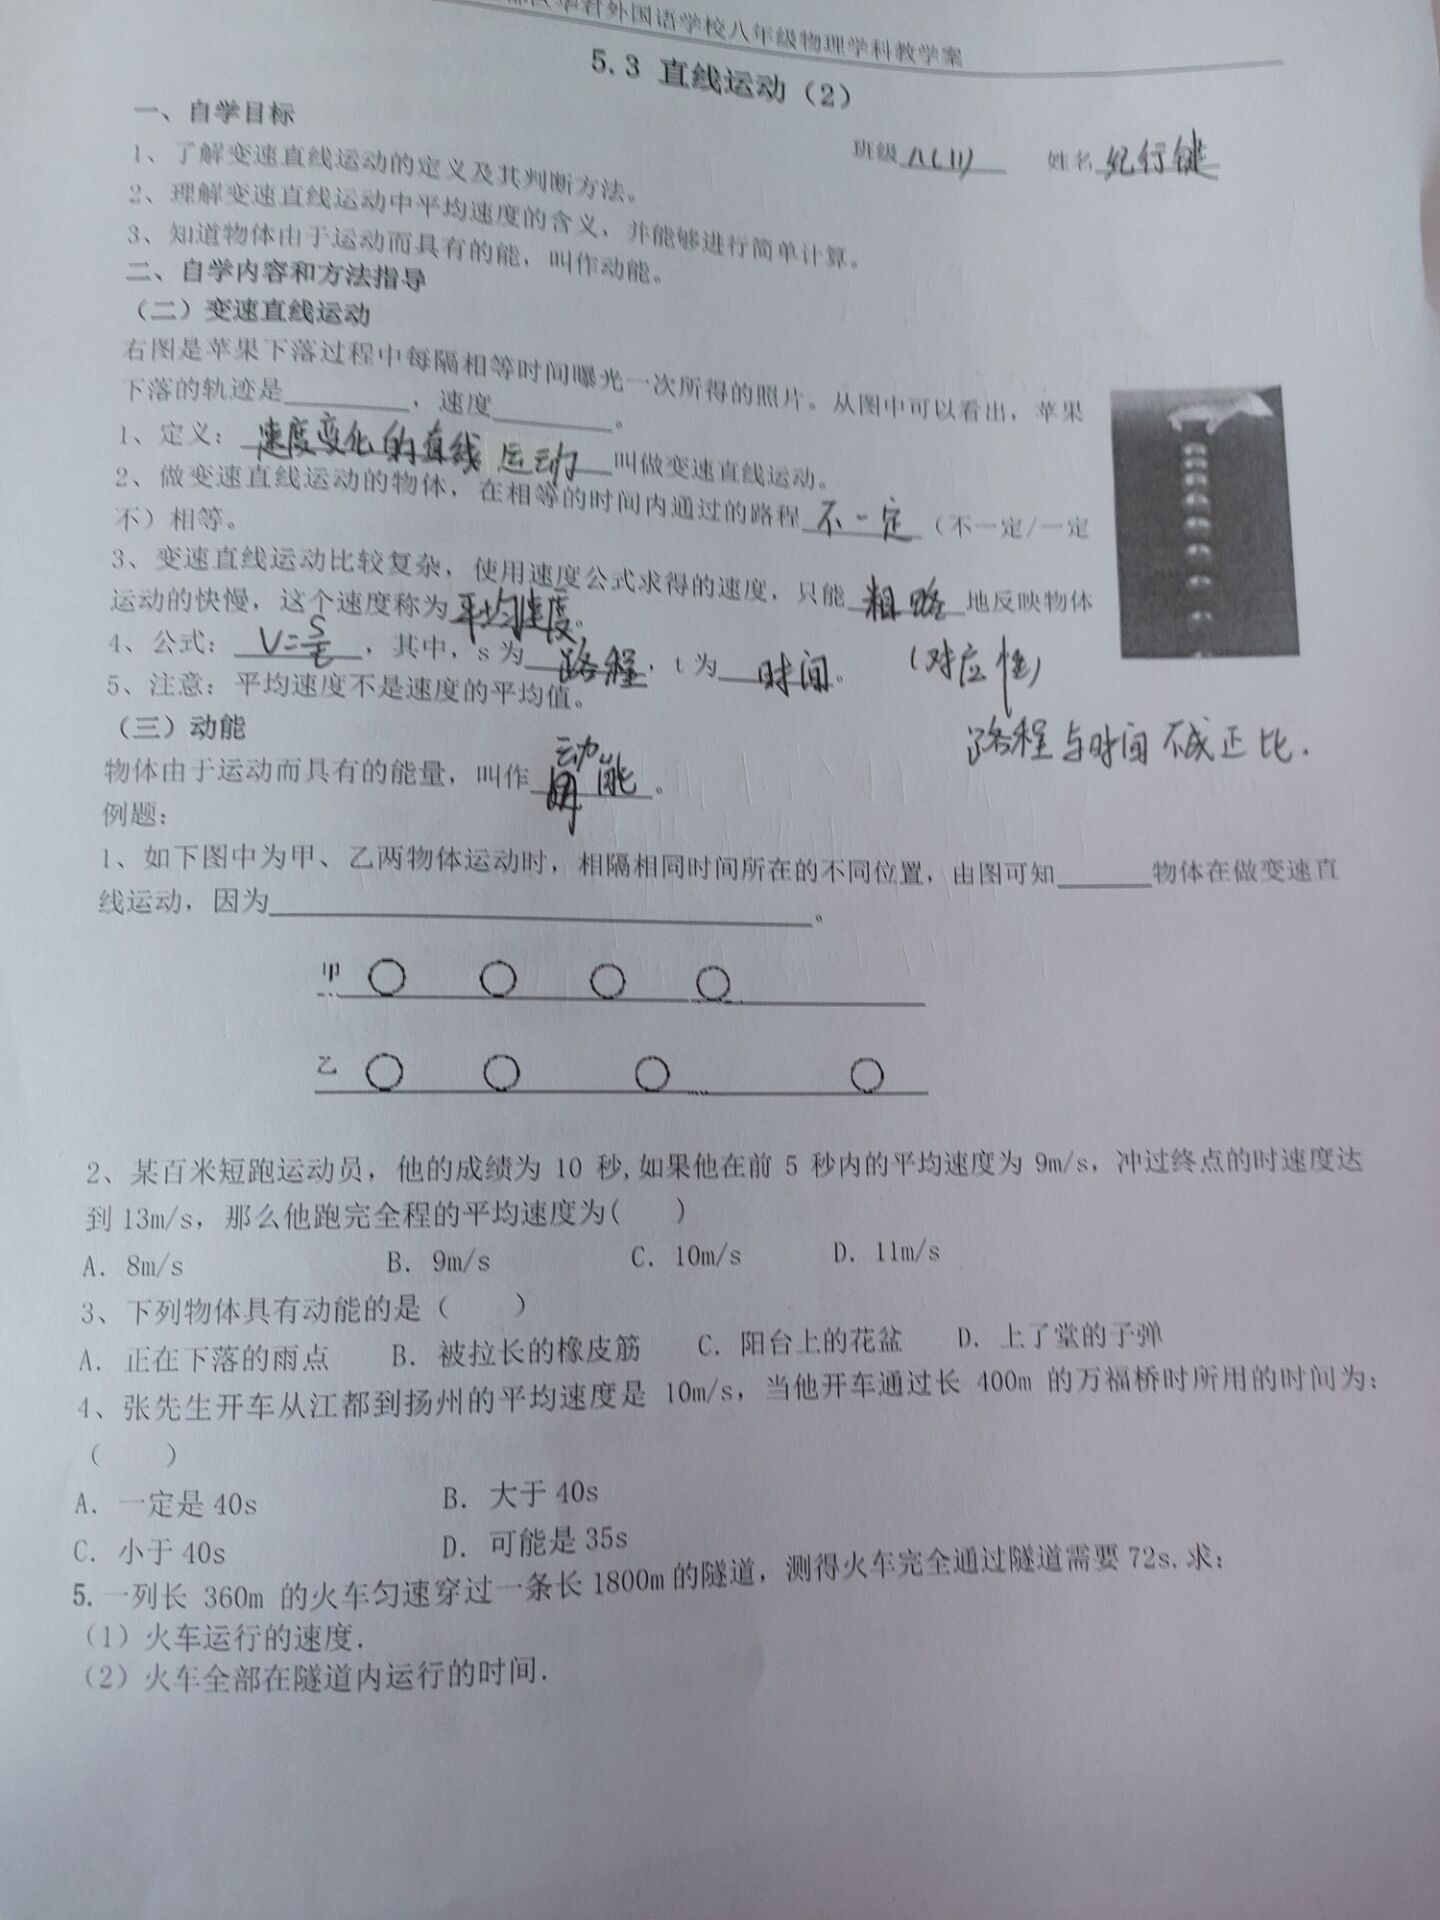 外国语学校八年级物理学科教学案
5.3 直线运动（2）
一、自学目标
班级 八（11） 姓名 纪行键
1、了解变速直线运动的定义及其判断方法。
2、理解变速直线运动中平均速度的含义，并能够进行简单计算。
3、知道物体由于运动而具有的能，叫作动能。
二、自学内容和方法指导
（二）变速直线运动
右图是苹果下落过程中每隔相等时间曝光一次所得的照片。从图中可以看出，苹果
下落的轨迹是________，速度________。
1、定义：速度变化的直线运动叫做变速直线运动。
2、做变速直线运动的物体，在相等的时间内通过的路程不一定（不一定/一定
不）相等。
3、变速直线运动比较复杂，使用速度公式求得的速度，只能粗略地反映物体
运动的快慢，这个速度称为平均速度。
4、公式：V=s/t，其中，s为路程，t为时间。
（对应性）
5、注意：平均速度不是速度的平均值。
路程与时间不成正比.
（三）动能
物体由于运动而具有的能量，叫作动能。
例题：
1、如下图中为甲、乙两物体运动时，相隔相同时间所在的不同位置，由图可知______物体在做变速直
线运动，因为____________________________________。
甲
乙
2、某百米短跑运动员，他的成绩为 10 秒,如果他在前 5 秒内的平均速度为 9m/s，冲过终点的时速度达
到13m/s，那么他跑完全程的平均速度为(　　)
A. 8m/s B. 9m/s C. 10m/s D. 11m/s
3、下列物体具有动能的是（　　）
A. 正在下落的雨点 B. 被拉长的橡皮筋 C. 阳台上的花盆 D. 上了堂的子弹
4、张先生开车从江都到扬州的平均速度是 10m/s，当他开车通过长 400m 的万福桥时所用的时间为：
（　　）
A. 一定是40s B. 大于40s
C. 小于40s D. 可能是35s
5.一列长 360m 的火车匀速穿过一条长1800m的隧道，测得火车完全通过隧道需要72s.求：
（1）火车运行的速度.
（2）火车全部在隧道内运行的时间.